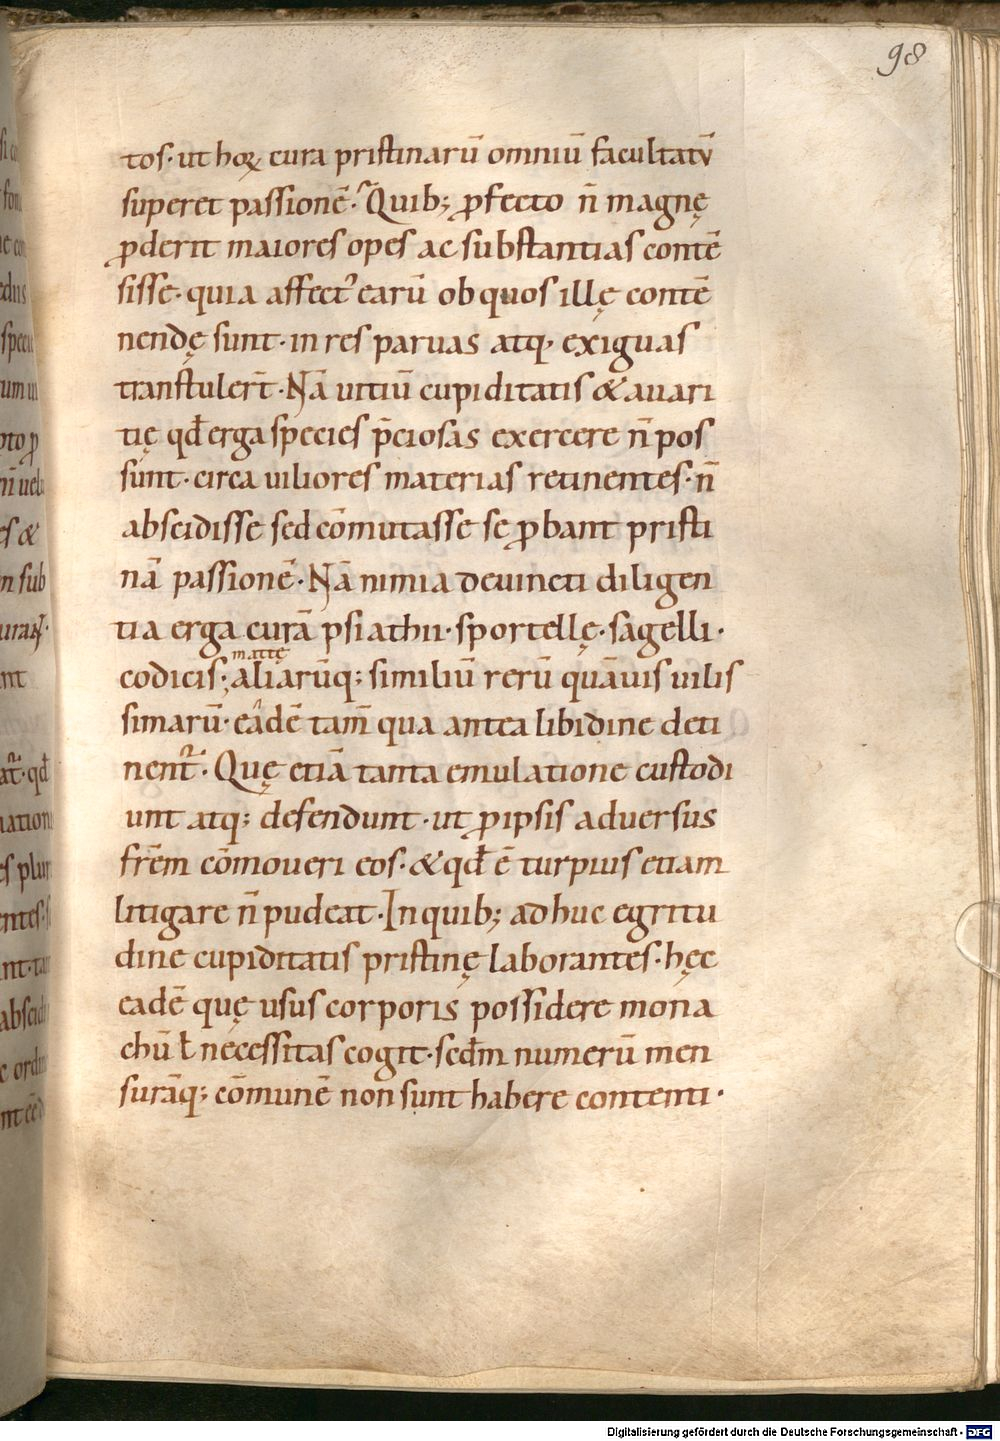 98
tos· ut hoꝝ cura pristinarū omniū facultatū
superet passionē· Quib; ꝓfecto n̄ magnę
ꝓderit maiores opes ac substantias contē
sisse· quia affect᾽ earū ob quos illę contē
nendę sunt· in res paruas atq· exiguas
transtuler̄t· Nā uitiū cupiditatis & auari
tię qđ erga species p̄ciosas exercere n̄ pos
sunt· circa uiliores materias retinentes· n̄
abscidisse sed cōmutasse se ꝓbant pristi
nā passionē· Nā nimia deuincti diligen
tia erga curā psiathii· sportellę· sagelli·
mattę
codicis; aliarūq; similiū rerū quāuis uilis
simarū· eādē tam̄ qua antea libidine deti
nent᷑· Quę etiā tanta emulatione custodi
unt atq; defendunt· ut ꝓ ipsis aduersus
frēm cōmoueri eos· & qđ ē turpius etiam
litigare n̄ pudeat· In quib; adhuc egritu
dine cupiditatis pristinę laborantes· hęc
eadē quę usus corporis possidere mona
chū ł necessitas cogit· scđm numerū men
surāq; cōmunē non sunt habere contenti·
Digitalisierung gefördert durch die Deutsche Forschungsgemeinschaft - DFG